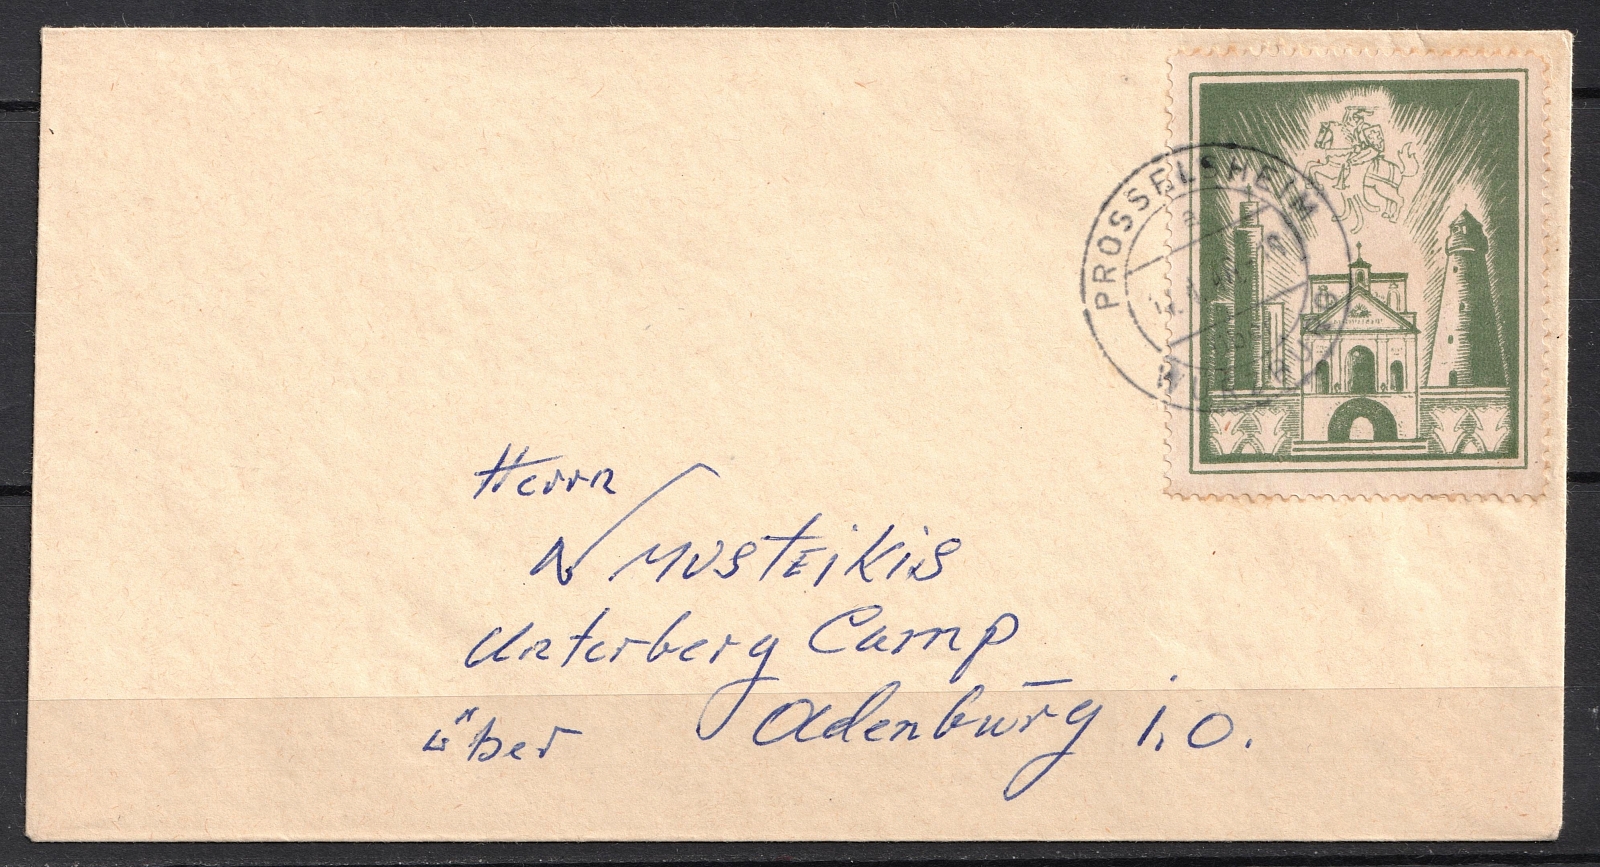 PROSSELSHEIM
a
WÜRZBURG
Herrn
N MUSTEIKIS
Unterberg Camp
über Odenburg i. O.